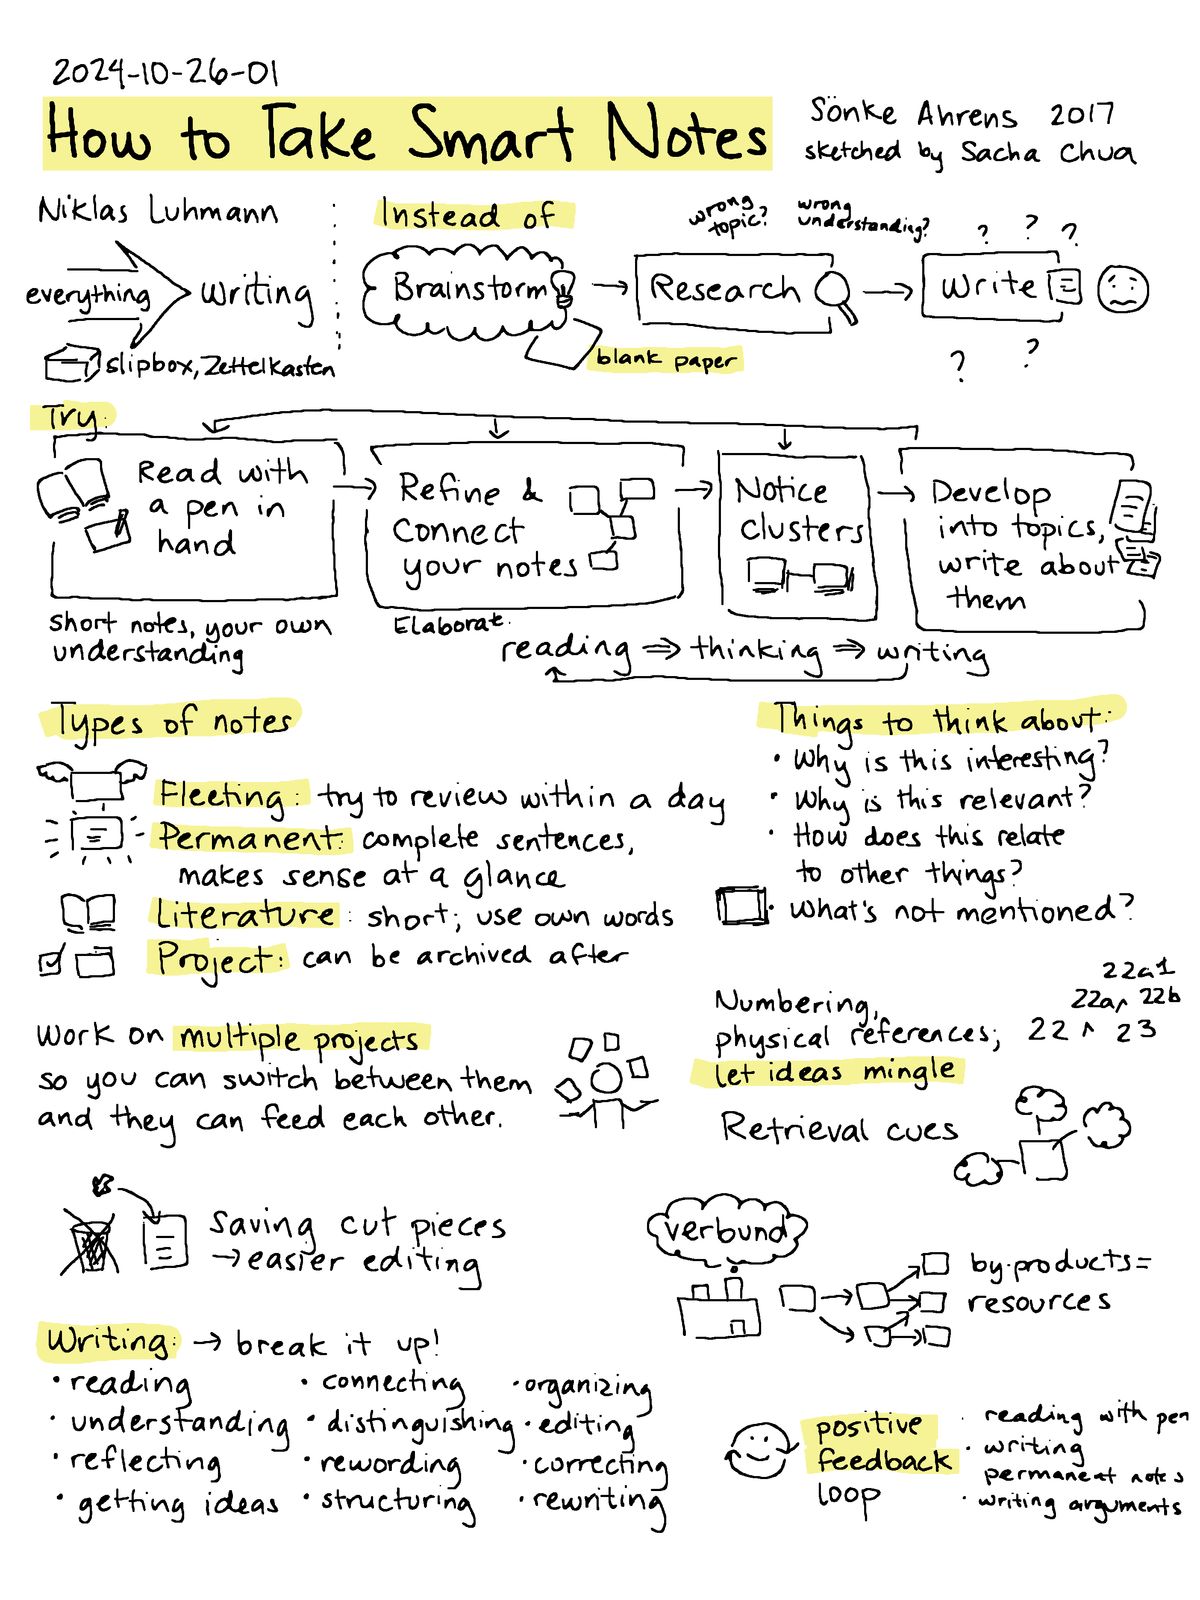 2024-10-26-01
How to Take Smart Notes
Sönke Ahrens 2017
sketched by Sacha Chua
Niklas Luhmann
everything
writing
slipbox, Zettelkasten
Instead of
Brainstorm
blank paper
wrong
topic?
Research
wrong
understanding?
? ? ?
Write
? ?
Try:
Read with
a pen in
hand
short notes, your own
understanding
Refine &
connect
your notes
Elaborat.
Notice
clusters
Develop
into topics,
write about
them
reading ⇒ thinking ⇒ writing
Types of notes
Fleeting: try to review within a day
Permanent: complete sentences,
makes sense at a glance
Literature: short; use own words
Project: can be archived after
Things to think about:
• Why is this interesting?
• Why is this relevant?
• How does this relate
to other things?
• What's not mentioned?
Work on multiple projects
so you can switch between them
and they can feed each other.
Numbering,
physical references;
let ideas mingle
22a1
22a^ 22b
22 ^ 23
Retrieval cues
saving cut pieces
→ easier editing
verbund
by-products =
resources
Writing: → break it up!
• reading
• understanding
• reflecting
• getting ideas
• connecting
• distinguishing
• rewording
• structuring
• organizing
• editing
• correcting
• rewriting
positive
feedback
loop
• reading with pen
• writing
permanent notes
• writing arguments